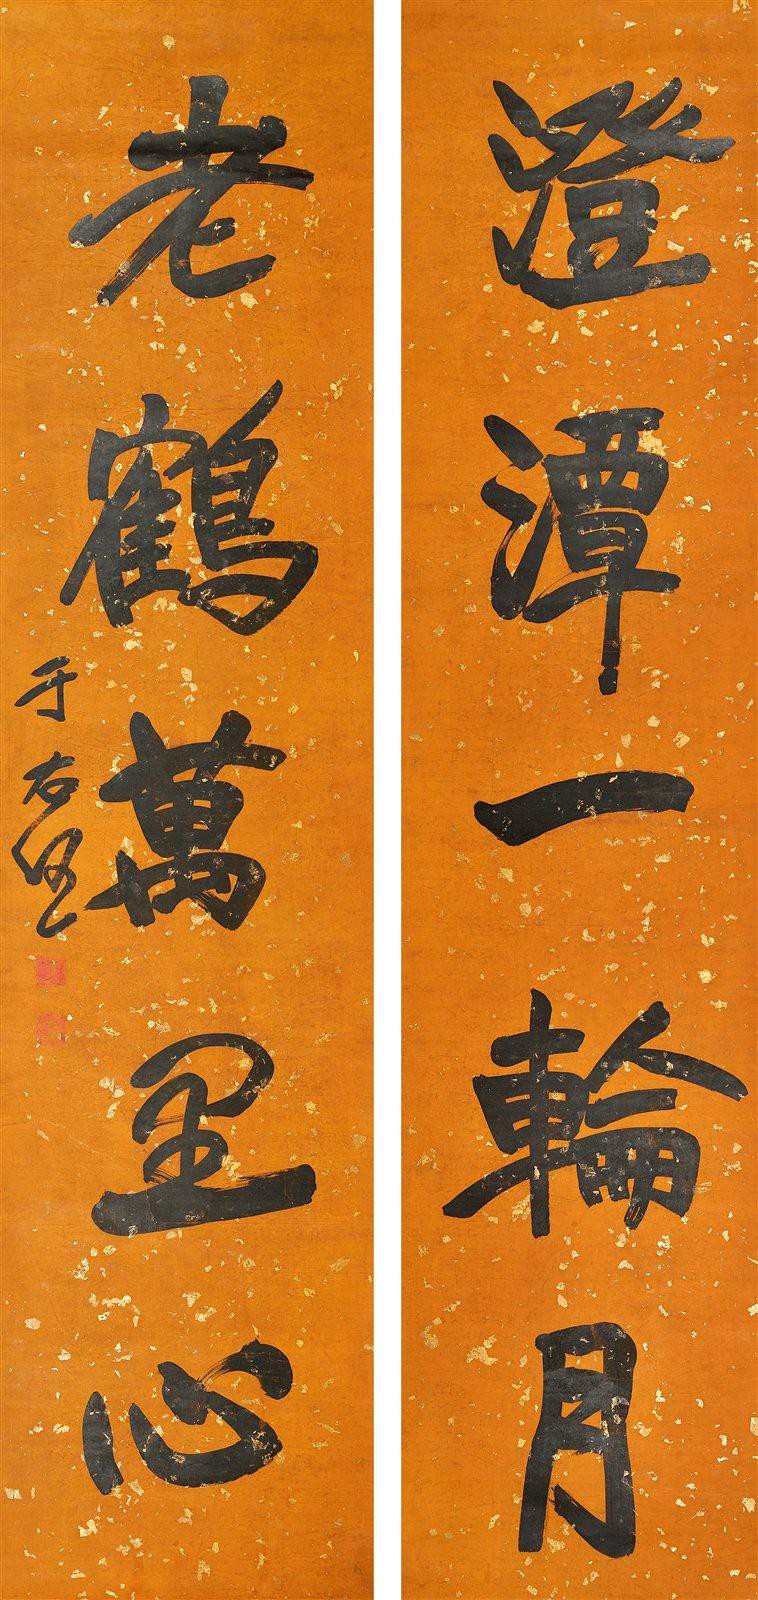 澄潭一輪月
老鶴萬里心
于右任